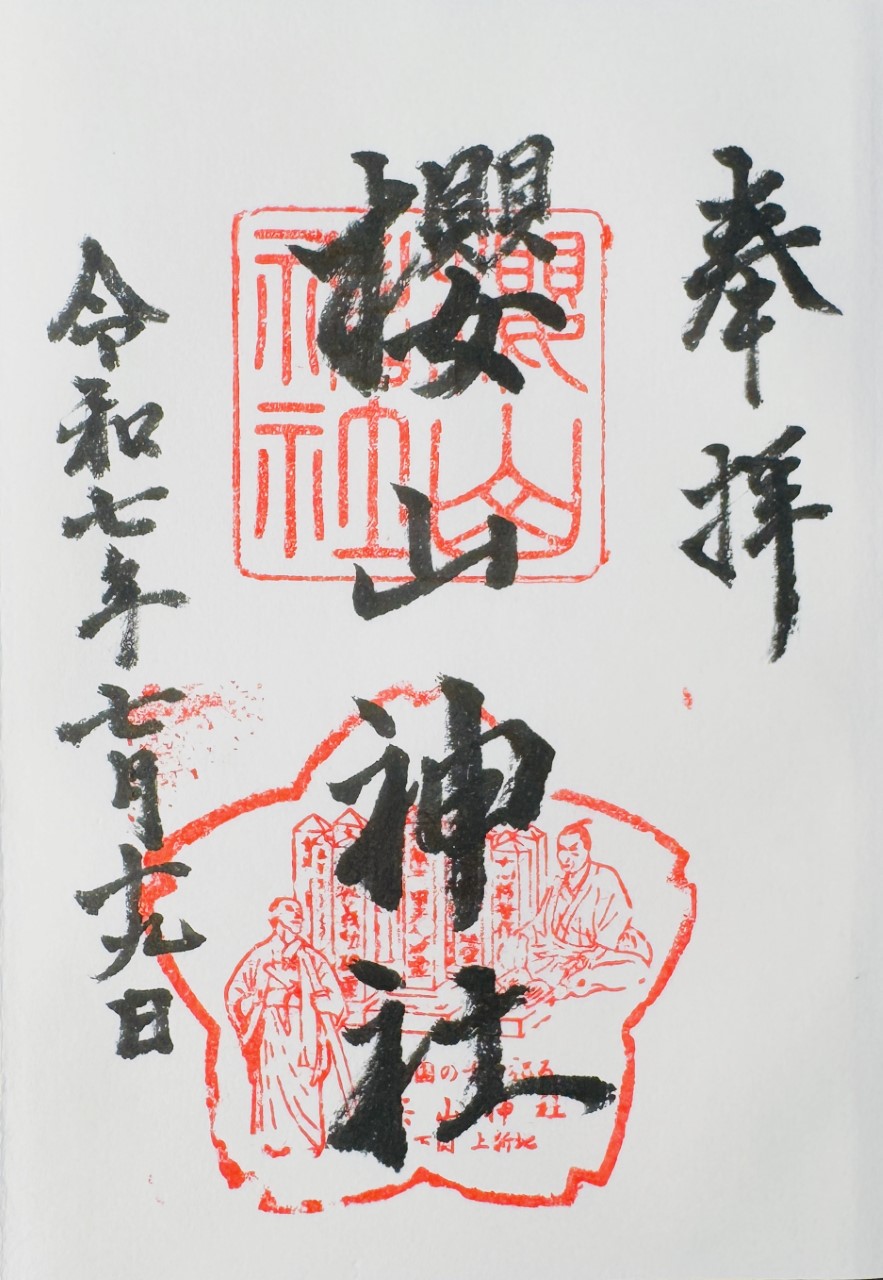 奉拝
櫻山神社
令和七年七月十九日
櫻山神社
上新地